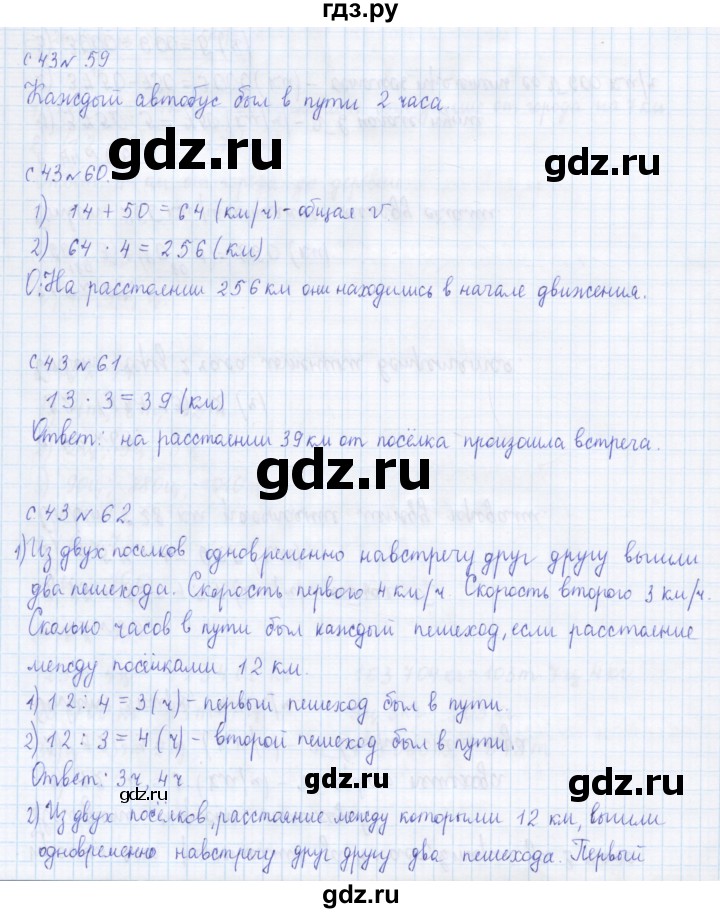 гдз.ру
с 43 № 59
Каждый автобус был в пути 2 часа.
gdz.ru
gdz.ru
с 43 № 60.
1) 14 + 50 = 64 (км/ч) - общая v
2) 64 · 4 = 256 (км)
О: На расстоянии 256 км они находились в начале движения.
с 43 № 61
13 · 3 = 39 (км)
Ответ: на расстоянии 39 км от посёлка произошла встреча.
gdz.ru
с 43 № 62
1) Из двух поселков одновременно навстречу друг другу вышли
два пешехода. Скорость первого 4 км/ч. Скорость второго 3 км/ч.
Сколько часов в пути был каждый пешеход, если расстояние
между посёлками 12 км.
1) 12 : 4 = 3 (ч) - первый пешеход был в пути.
2) 12 : 3 = 4 (ч) - второй пешеход был в пути.
Ответ: 3ч, 4ч
gdz.ru
gdz.ru
gdz.ru
2) Из двух посёлков, расстояние между которыми 12 км, вышли
одновременно навстречу друг другу два пешехода. Первый
gdz.ru